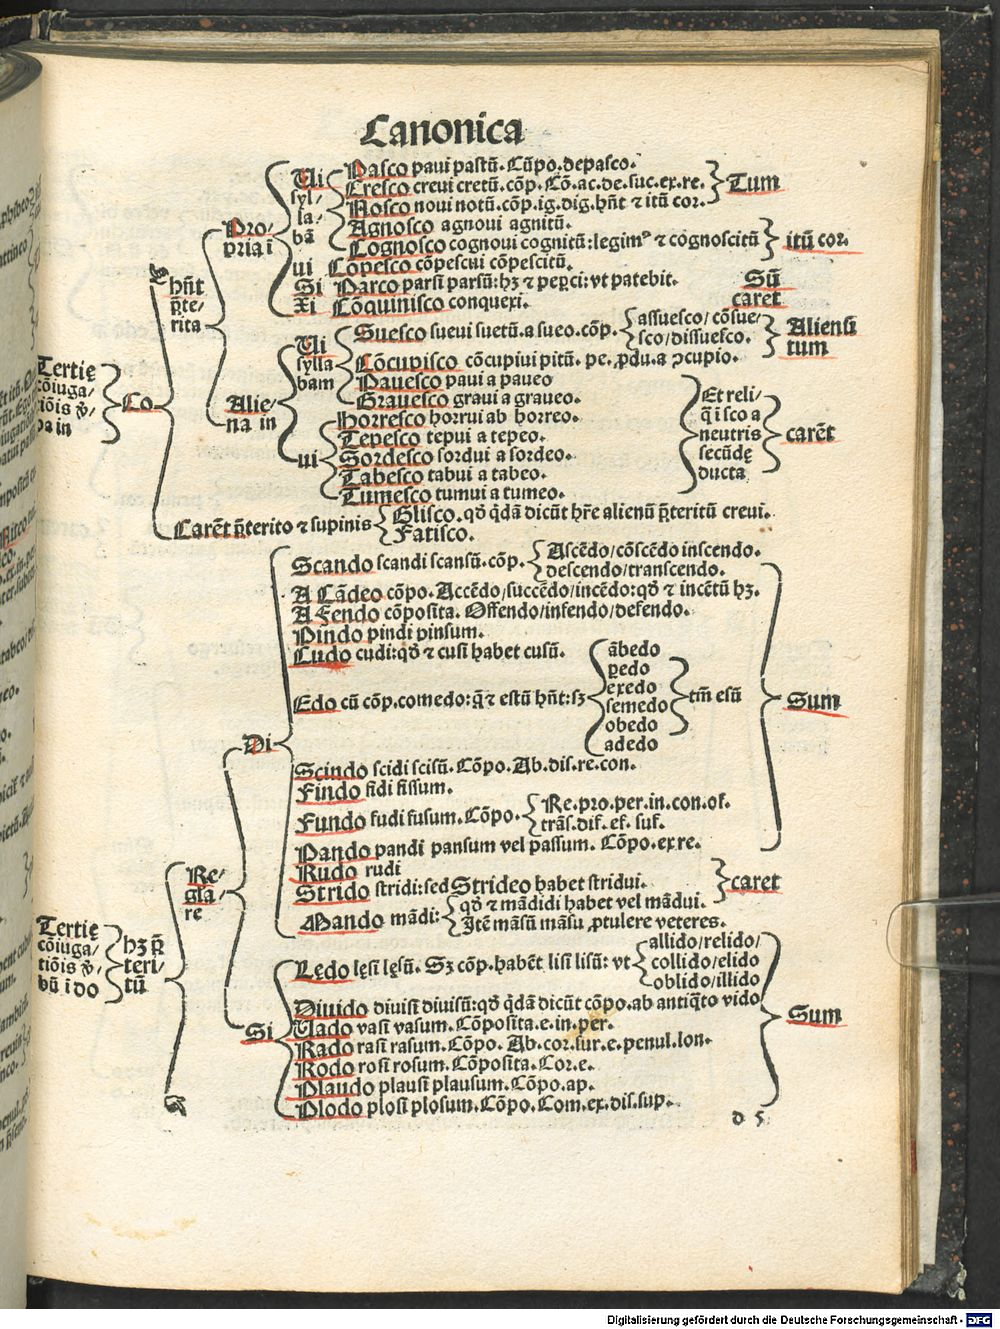 Canonica
Ui syl/la/bā
Pasco paui pastū. Cūpo. depasco.
Cresco creui cretū. cōp. Cō. ac. de. suc. ex. re.
Nosco noui notū. cōp. ig. dig. hn̄t ⁊ itū cor.
Tum
Agnosco agnoui agnitū.
Cognosco cognoui cognitū: legimꝰ ⁊ cognoscitū
itū cor.
Pro/pria i
ui Cōpesco cōpescui cōpescitū.
Si Parco parsi parsū: hꝫ ⁊ peperci: vt patebit.
Sū
Xi Cōquinisco conquexi.
caret
hn̄t p̄te/rita
Suesco sueui suetū. a sueo. cōp.
assuesco/ cōsue/
sco/dissuesco.
Alienū
tum
Ui sylla bam
Cōcupisco cōcupiui pitū. pe. ꝓdu. a ↄcupio.
Pauesco paui a paueo
Grauesco graui a graueo.
Tertię cōiuga/tiōis v̄/ba in
Co
Alie/na in
ui
Horresco horrui ab horreo.
Tepesco tepui a tepeo.
Sordesco sordui a sordeo.
Tabesco tabui a tabeo.
Tumesco tumui a tumeo.
Et reli/
q̄ i sco a
neutris
secūdę
ducta
carēt
Carēt p̄terito ⁊ supinis
Glisco. qd̄ q̄dā dicūt hr̄e alienū p̄teritū creui.
Fatisco.
Scando scandi scansū. cōp.
Ascēdo/ cōscēdo inscendo.
descendo/transcendo.
A Cādeo cōpo. Accēdo/succēdo/incēdo: qd̄ ⁊ incētū hꝫ.
A Fendo cōposita. Offendo/infendo/defendo.
Pindo pindi pinsum.
Cudo cudi: qd̄ ⁊ cusi habet cusū.
Edo cū cōp. comedo: q̄ ⁊ estū hn̄t: sꝫ
ābedo
ꝑedo
exedo
semedo
obedo
adedo
tm̄ esū
Sum
Di
Scindo scidi scisū. Cōpo. Ab. dis. re. con.
Findo fidi fissum.
Fundo fudi fusum. Cōpo.
Re. pro. per. in. con. of.
trās. dif. ef. suf.
Pando pandi pansum vel passum. Cōpo. ex re.
Rudo rudi
Strido stridi: sed Strideo habet stridui.
caret
Mando mādi:
qd̄ ⁊ mādidi habet vel mādui.
Itē māsū māsu ꝓtulere veteres.
Re/gla/re
Tertię cōiuga/tiōis v̄/bū i do
hꝫ p̄/teri/tū
Lędo lęsi lęsū. Sꝫ cōp. habēt lisi lisū: vt
allido/relido/
collido/elido
oblido/illido
Diuido diuisi diuisū: qd̄ q̄dā dicūt cōpo. ab antiq̄to vido
Si
Uado vasi vasum. Cōposita. e. in. per.
Sum
Rado rasi rasum. Cōpo. Ab. cor. sur. e. penul. lon.
Rodo rosi rosum. Cōposita. Cor. e.
Plaudo plausi plausum. Cōpo. ap.
Plodo plosi plosum. Cōpo. Com. ex. dis. sup.
d 5
Digitalisierung gefördert durch die Deutsche Forschungsgemeinschaft - DFG